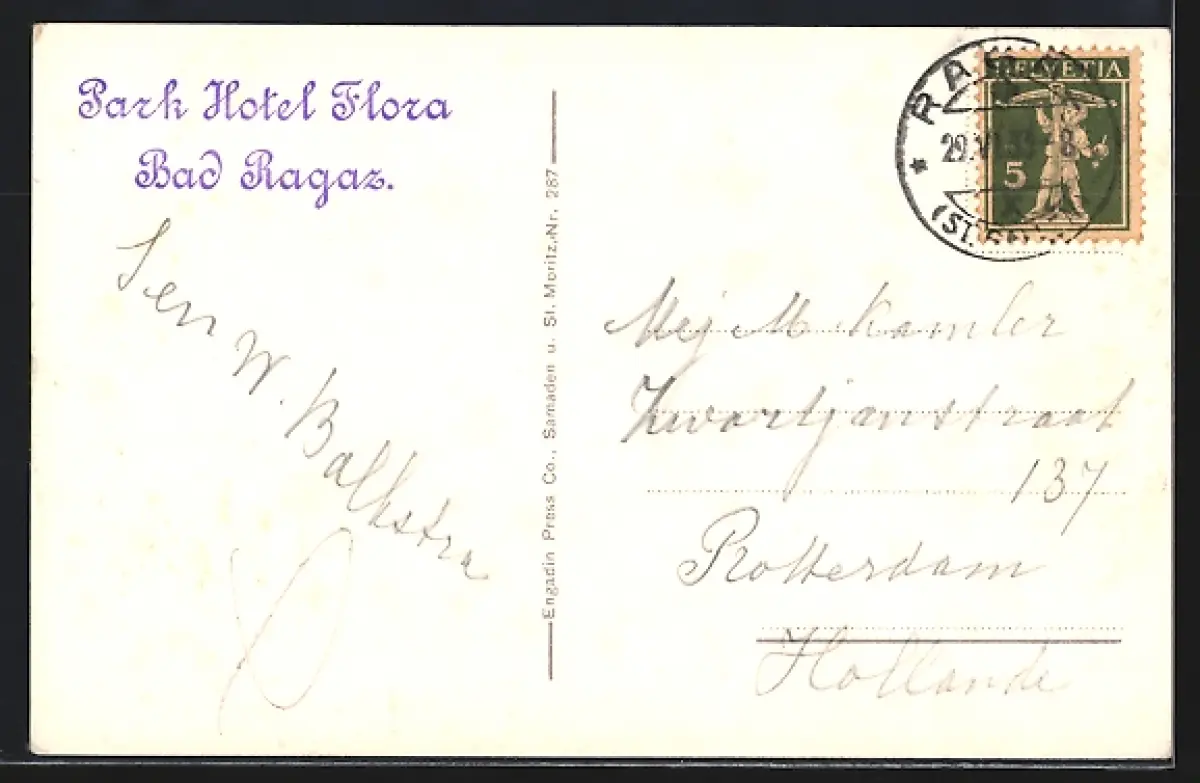 Park Hotel Flora
Bad Ragaz.
W. Balkstra
Engadin Press Co., Samaden u. St. Moritz, Nr. 287
HELVETIA
5
29.VI.
8
(ST.
Mej M Kamler
Zwartjanstraat
137
Rotterdam
Hollande